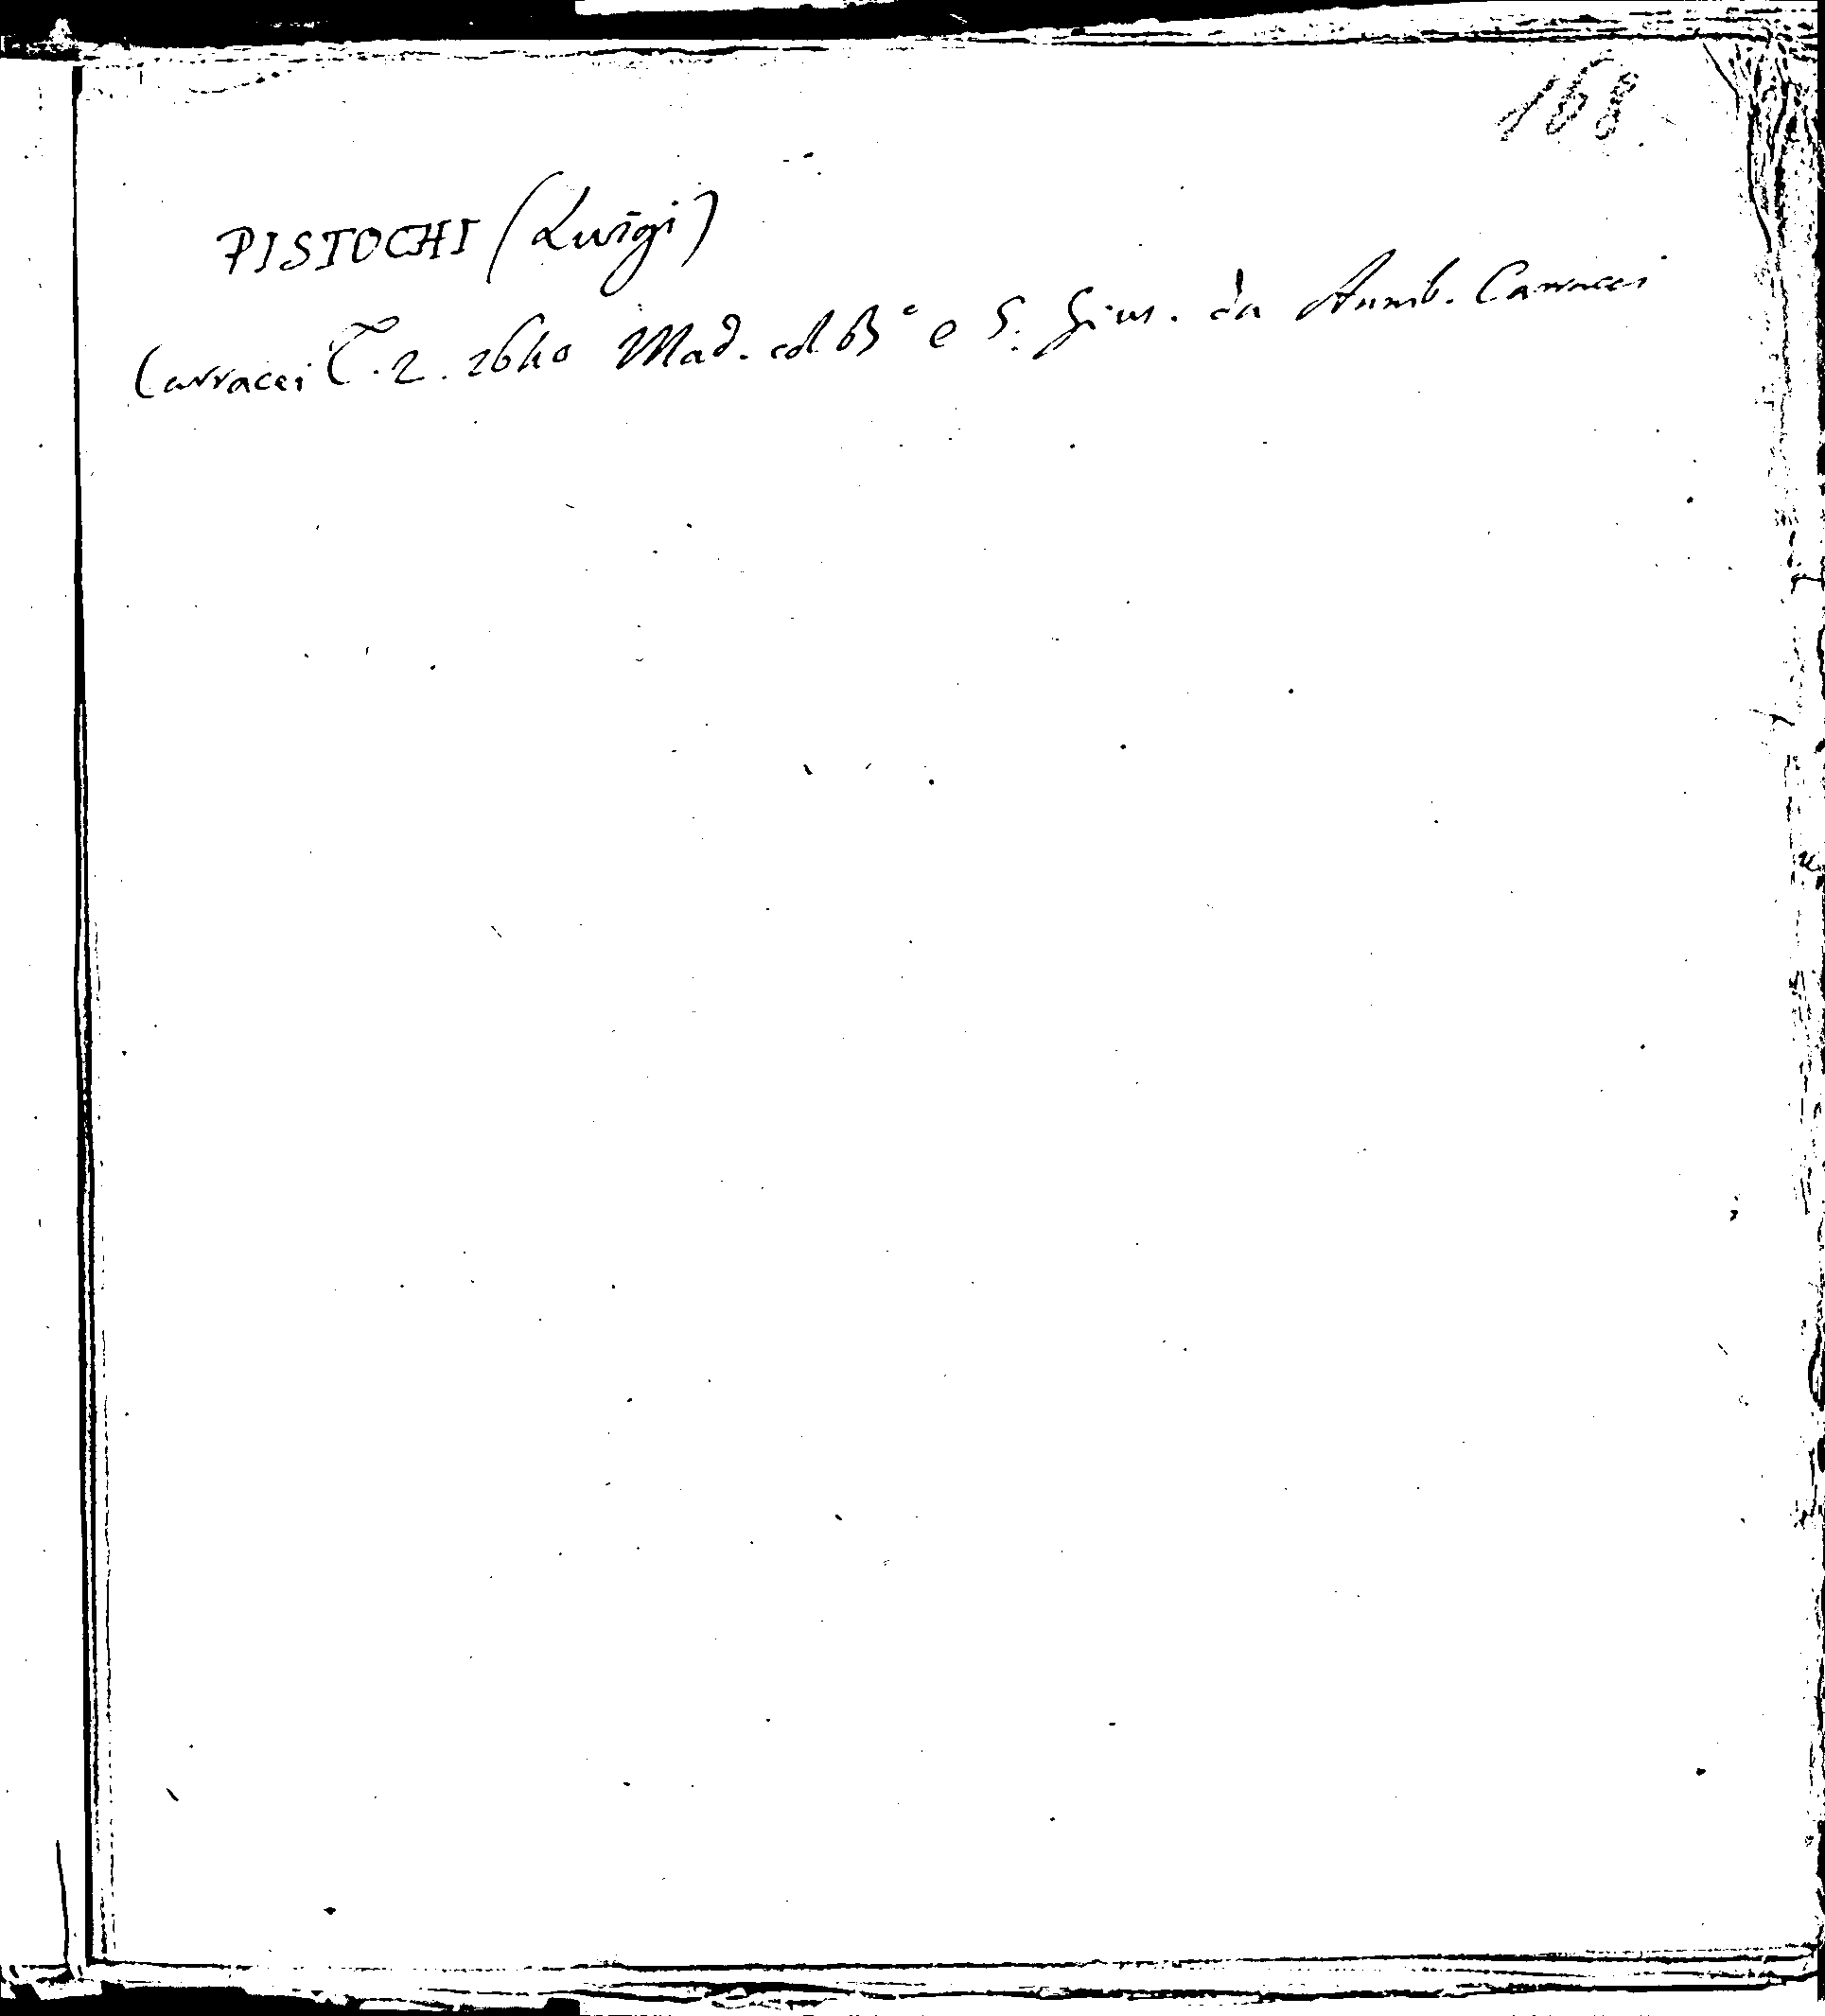 168
PISTOCHI (Luigi)
Carracci T. 2. 2640 Mad. col B° e S. Gius. da Annib. Carracci